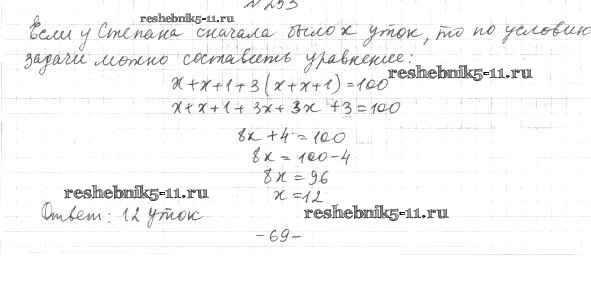 № 293
reshebnik5-11.ru
Если у Степана сначала было x уток, то по условию
задачи можно составить уравнение:
reshebnik5-11.ru
x+x+1+3(x+x+1)=100
x+x+1+3x+3x+3=100
8x+4=100
8x=100-4
8x=96
reshebnik5-11.ru
x=12
Ответ: 12 уток
reshebnik5-11.ru
-69-